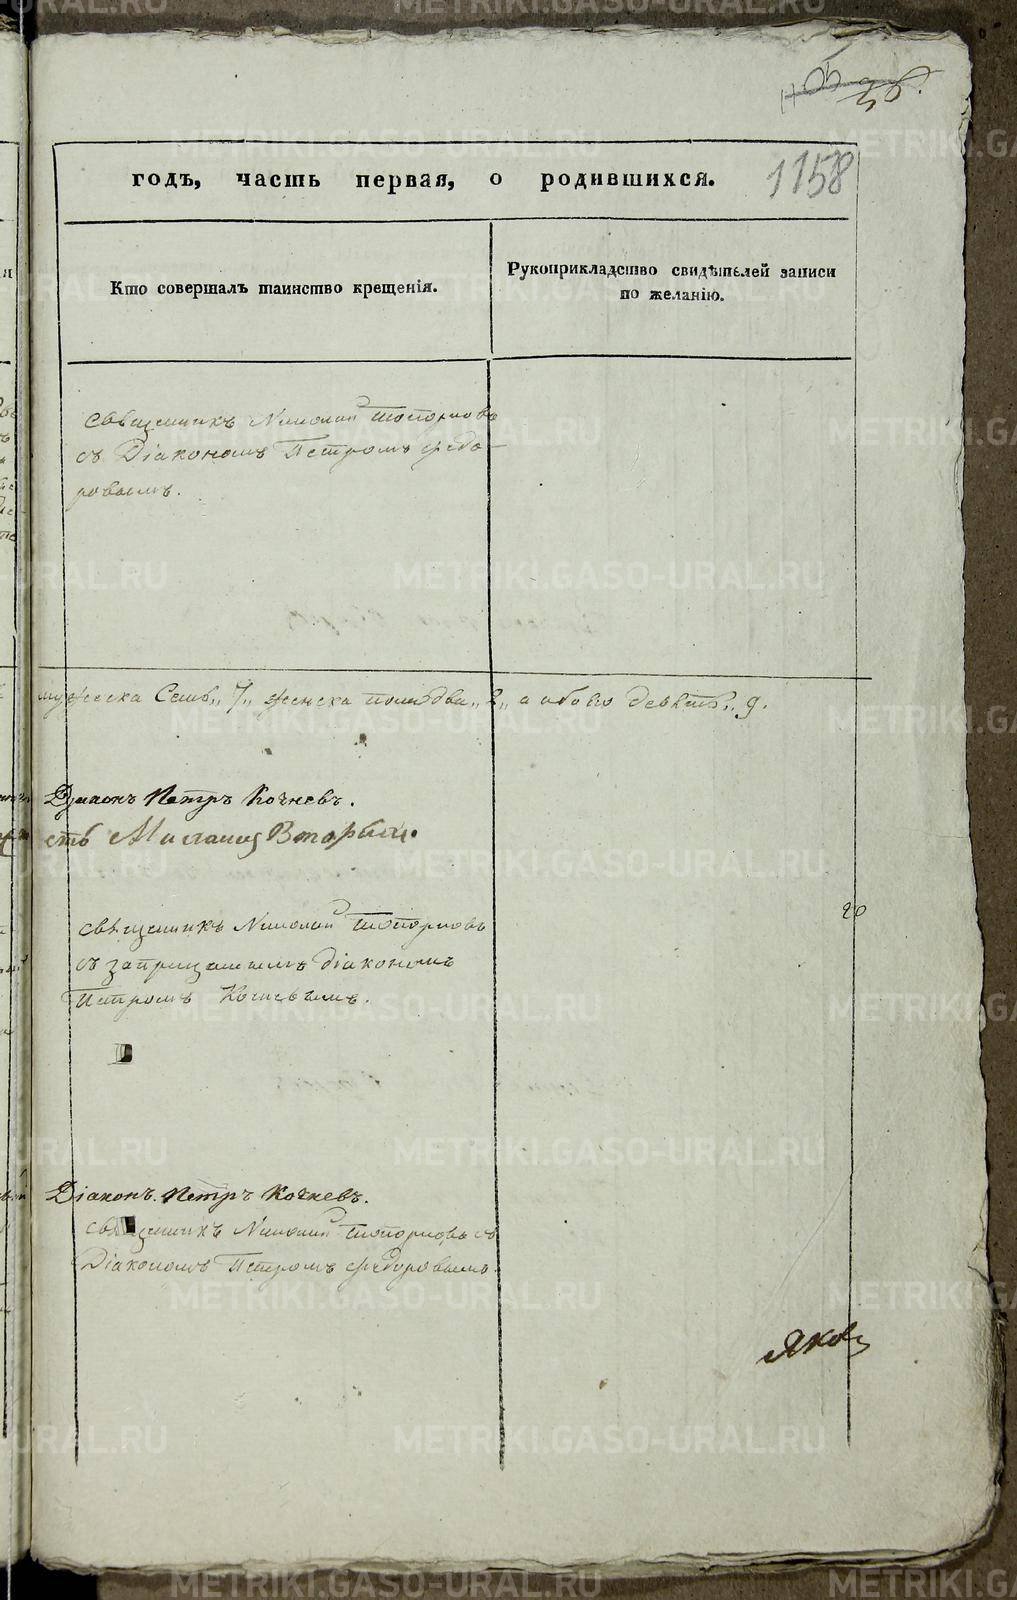 36.
1158
годъ, часть первая, о родившихся.
Кто совершалъ таинство крещенія.
Рукоприкладство свидѣтелей записи
по желанію.
Священникъ Николай Топорковъ
съ Діакономъ Петромъ Ѳедо-
ровымъ.
мужеска Семь „7„ женска пола два „2„ а обоего девять „9.
Діаконъ Петръ Кочневъ.
Священникъ Николай Топорковъ
20
съ запрещеннымъ діакономъ
Петромъ Кочневымъ.
Діаконъ Петръ Кочневъ.
Священникъ Николай Топорковъ съ
Діакономъ Петромъ Ѳедоровымъ.
Яков
METRIKI.GASO-URAL.RU